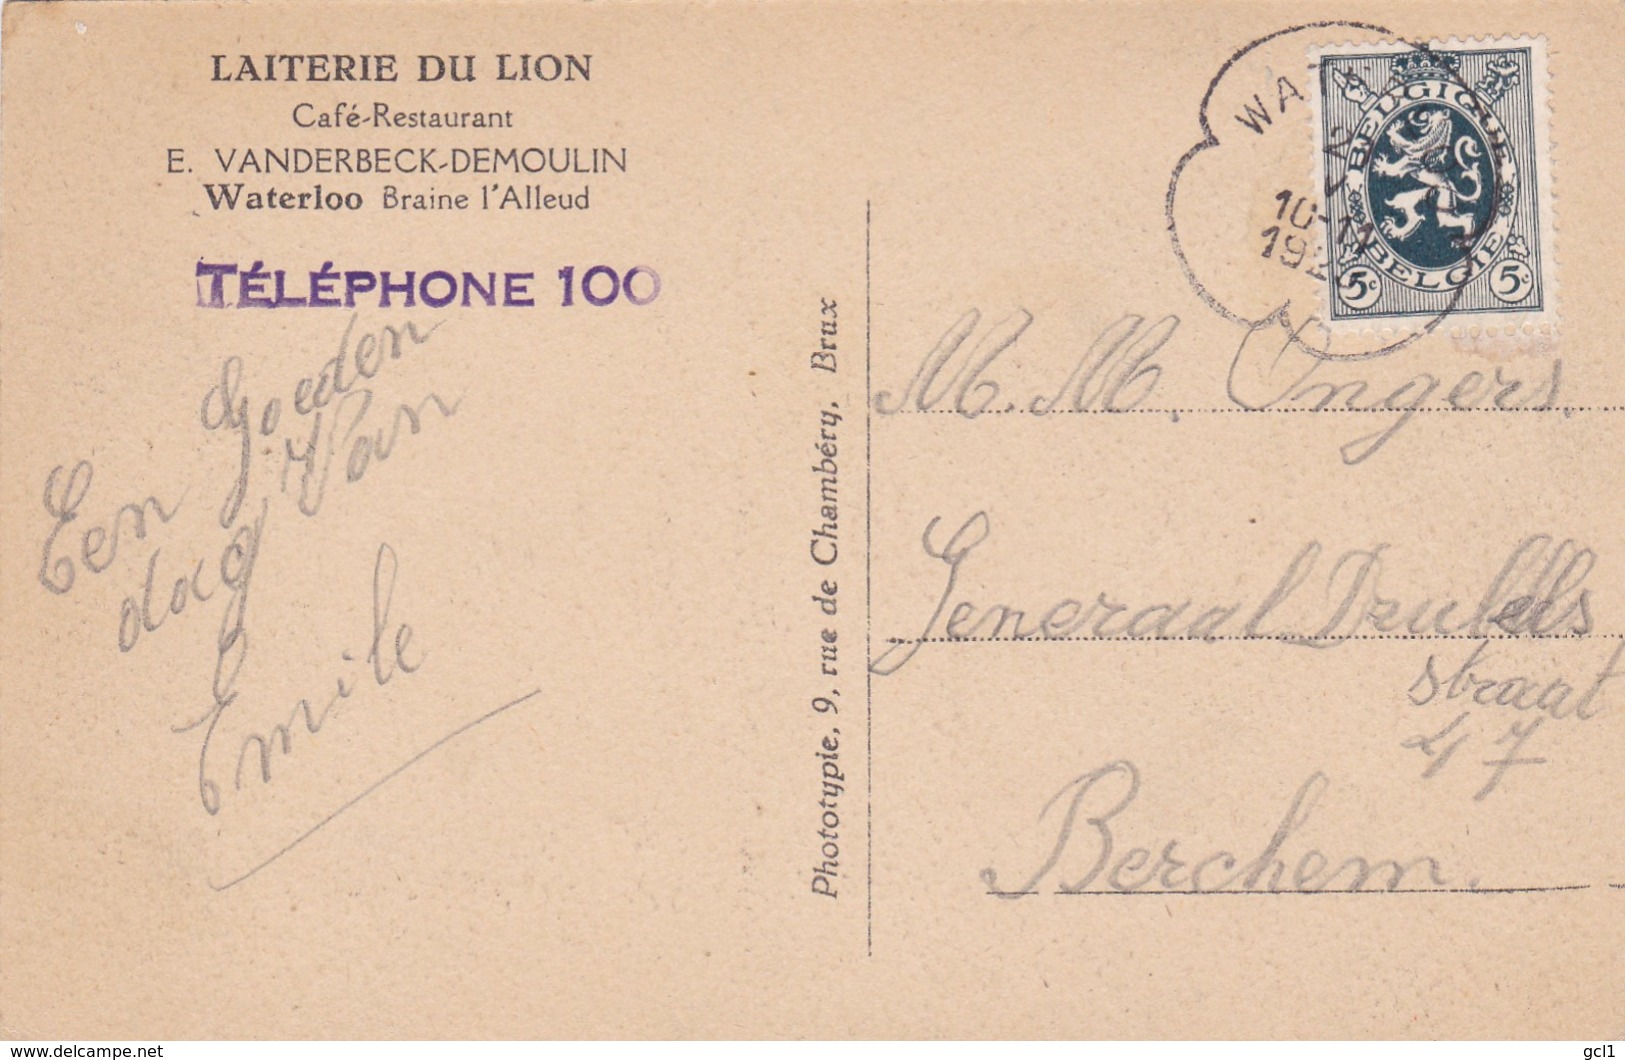 LAITERIE DU LION
Café-Restaurant
E. VANDERBECK-DEMOULIN
Waterloo Braine l'Alleud
TÉLÉPHONE 100
Een Goeden
dag Van
Emile
Phototypie, 9, rue de Chambéry, Brux
WAT
10-11
BELGIQUE
BELGIE
5c 5c
M. M. Ongers.
Generaal
straat
47
Berchem.
https://www.delcampe.net
gcl1